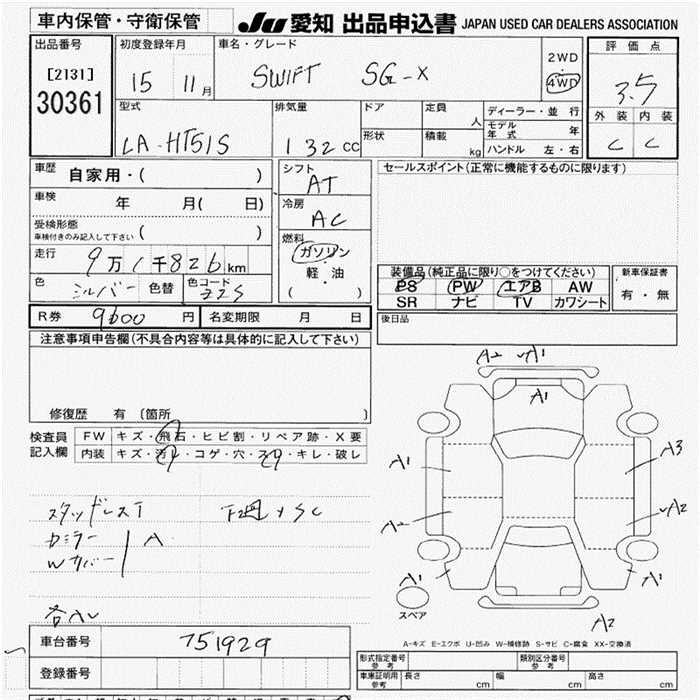 車内保管・守衛保管
JU 愛知 出品申込書 JAPAN USED CAR DEALERS ASSOCIATION
出品番号 初度登録年月 車名・グレード 2WD・4WD 評価点
[2131] 30361 15 11月 SWIFT SG-X 3.5
外装 内装
C C
型式 排気量 ドア 定員 人 ディーラー・並行
モデル年式 年
LA-HT51S 132cc 形状 積載 kg ハンドル 左・右
車歴 自家用・( )
シフト AT
セールスポイント(正常に機能するものに限ります)
車検 年 月( 日)
冷房 AC
受検形態 車検付きのみ記入して下さい ( )
燃料 ガソリン・軽・油 ( )
走行 9万1千826km
装備品(純正品に限り○をつけてください) 新車保証書
色 シルバー 色替 色コード Z2S
PS PW エアB AW
SR ナビ TV カワシート
有・無
R券 9600円 名変期限 月 日
後日品
注意事項申告欄(不具合内容等は具体的に記入して下さい)
修復歴 有 〔箇所 〕
検査員記入欄 FW キズ・飛石・ヒビ割・リペア跡・X要
内装 キズ・汚レ・コゲ・穴・スレ・キレ・破レ
A2 A1
A1
A1 A3
A2 A2
A1 A1
A2
スペア
スタッドレスT 下廻サSC
Dミラー
Wカバー A
各ハレ
A-キズ E-エクボ U-凹み W-補修跡 S-サビ C-腐食 XX-交換済
車台番号 751929
登録番号
形式指定番号 参考 類別区分番号 参考
車庫証明用 参考 長さ cm 幅 cm 高さ cm